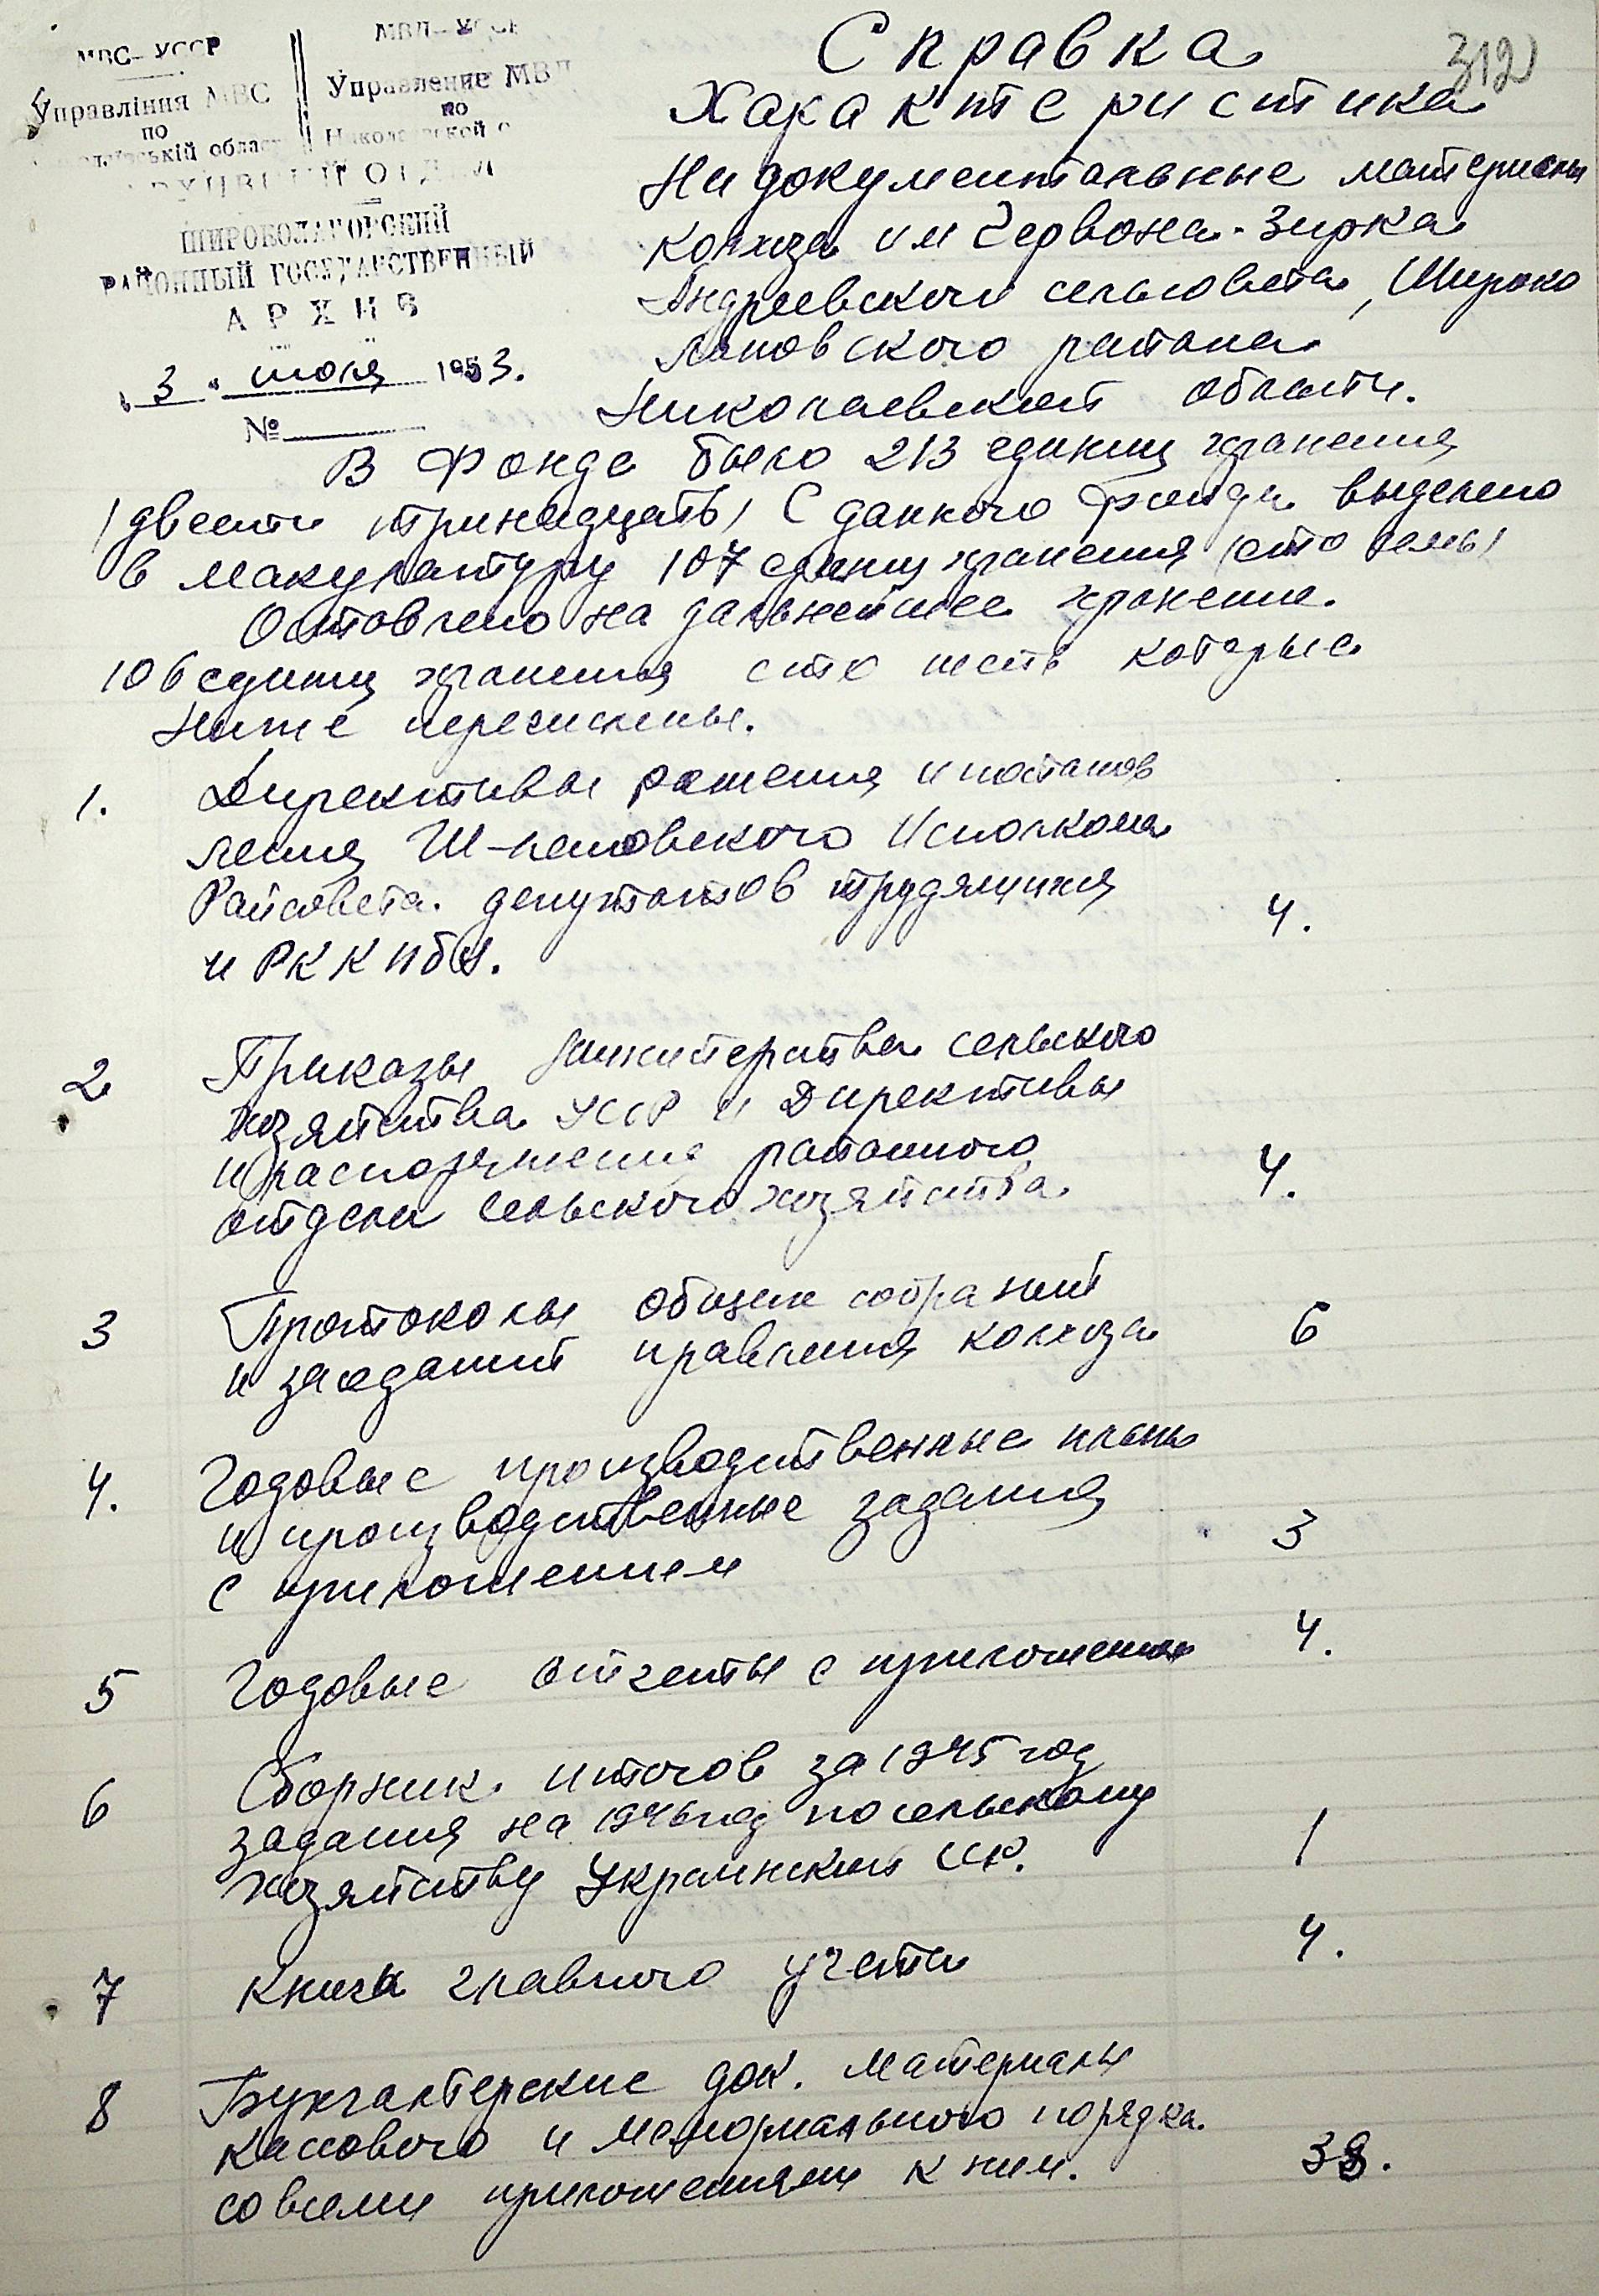 МВС-УССР
Управління МВС
по
області
МВД-УССР
Управление МВД
по
Николаевской о
АРХИВНЫЙ ОТДЕЛ
ШИРОКОЛАНОВСКИЙ
РАЙОННЫЙ ГОСУДАРСТВЕННЫЙ
АРХИВ
"3" июля 1953.
№
312
Справка
Характеристика
На документальные материалы
колхоза им Червона-Зирка
Андреевского сельсовета, Широко
лановского района
Николаевской области.
В Фонде было 213 единиц хранения
/двести тринадцать/ С данного фонда выделено
в макулатуру 107 единиц хранения /сто семь/
Оставлено на дальнейшее хранение.
106 единиц хранения сто шесть которые
ниже перечислены.
1. Директивы решения и постанов
ления Ш-лановского Исполкома
Райсовета депутатов трудящихся
и РК КПбУ. 4.
2 Приказы Министерства сельского
хозяйства УССР и Директивы
и распоряжения районного
отдела сельского хозяйства 4.
3 Протоколы общих собраний
и заседаний правления колхоза 6
4. Годовые производственные планы
и производственные задания
с приложением 3
5 Годовые отчеты с приложением 4.
6 Сборник итогов за 1945 год
задания на 1946 год по сельскому
хозяйству Украинской ССР. 1
7 Книга главного учета 4.
8 Бухгалтерские док. материалы
кассового и мемориального порядка
со всеми приложениями к ним. 38.